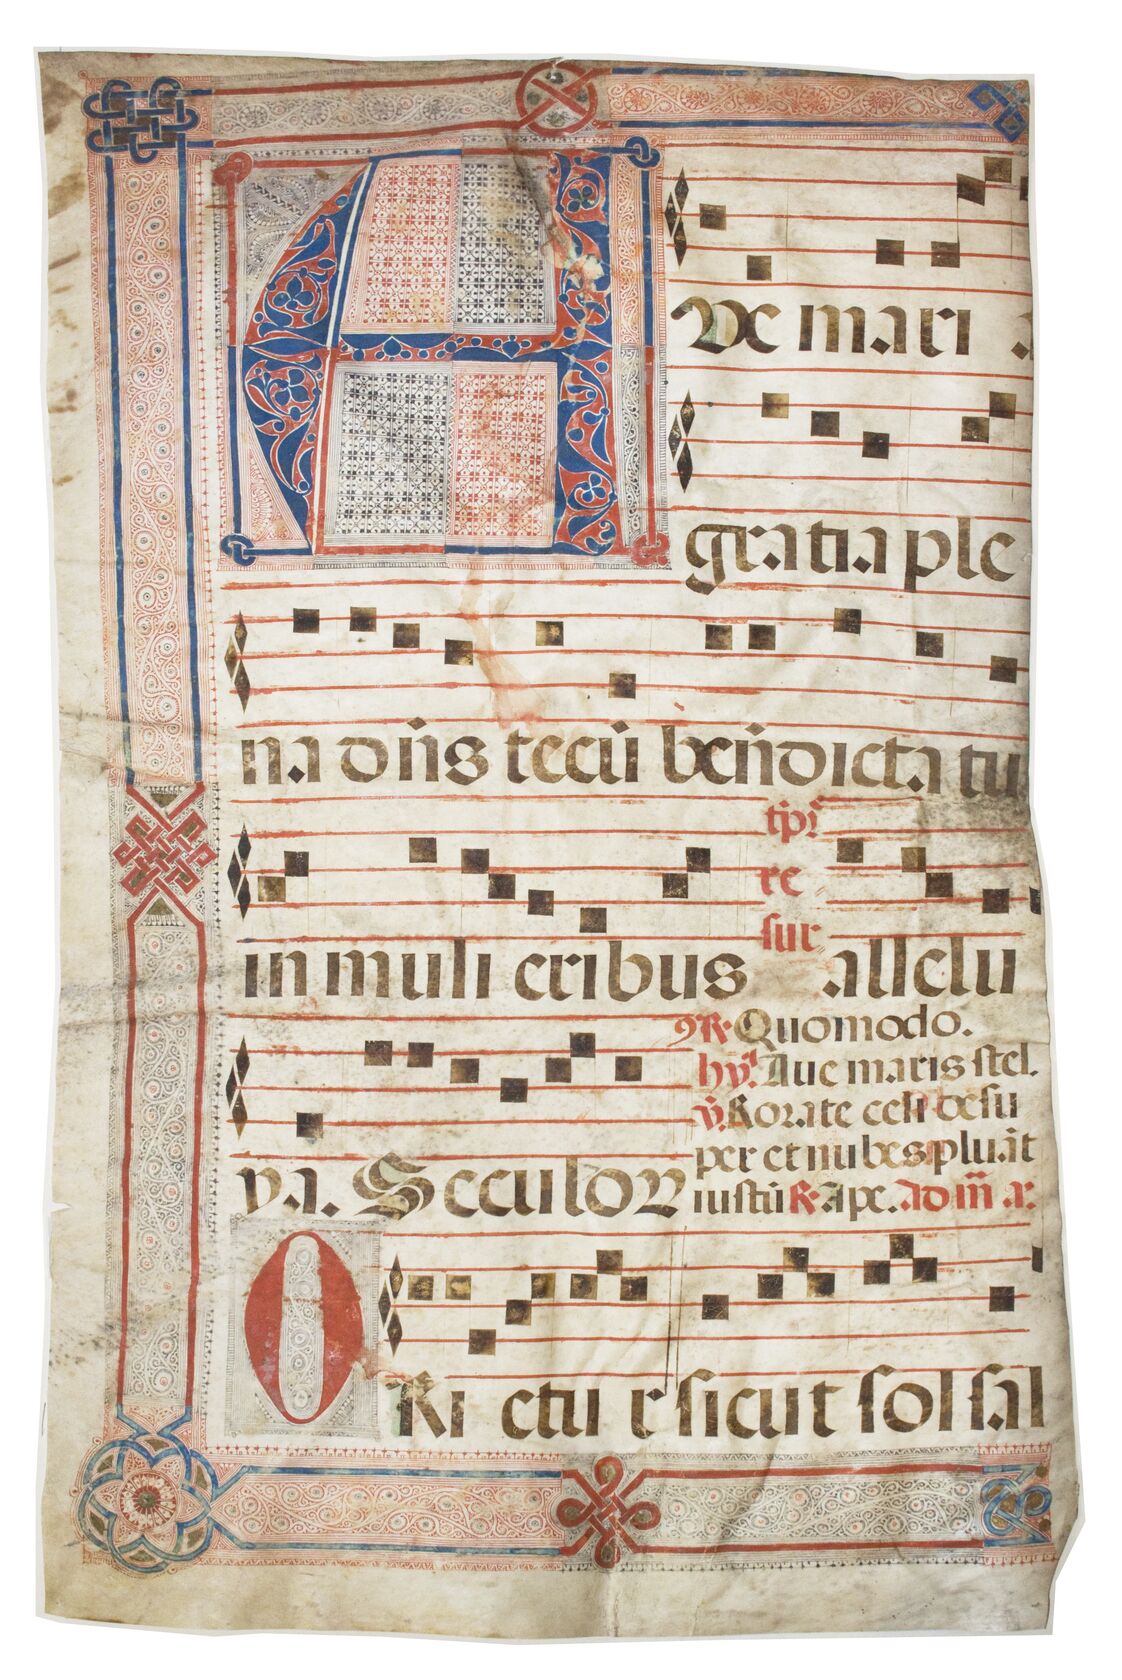 AVe mari a
gratia ple
na dñs tecũ beñdicta tu
in mulieribus tp̃r re sur allelu
ya. Seculoꝝ
9 R. Quomodo.
hỹ. Aue maris stel.
ṽ. Rorate celi desu
per et nubes pluãt
iustũ R. Ape. ad m̃ a.
ORietur sicut sol sal